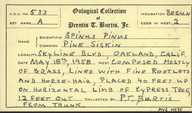 Oological Collection
A.O.U. 533 of
SET MARK A Prentis T. Burtis, Jr. EGGS IN SET 2
SPECIES SPINUS PINUS
NAME PINE SISKIN
LOCALITY SKYLINE BLVD., OAKLAND, CALIF.
DATE MAY 18TH, 1958. NEST COMPOSED MOSTLY
OF GRASS, LINED WITH FINE ROOTLETS
AND HORSE-HAIR, PLACED 40 FEET UP
ON HORIZONTAL LIMB OF CYPRESS TREE
12 FEET OUT COLLECTED BY P.T. BURTIS
FROM TRUNK.